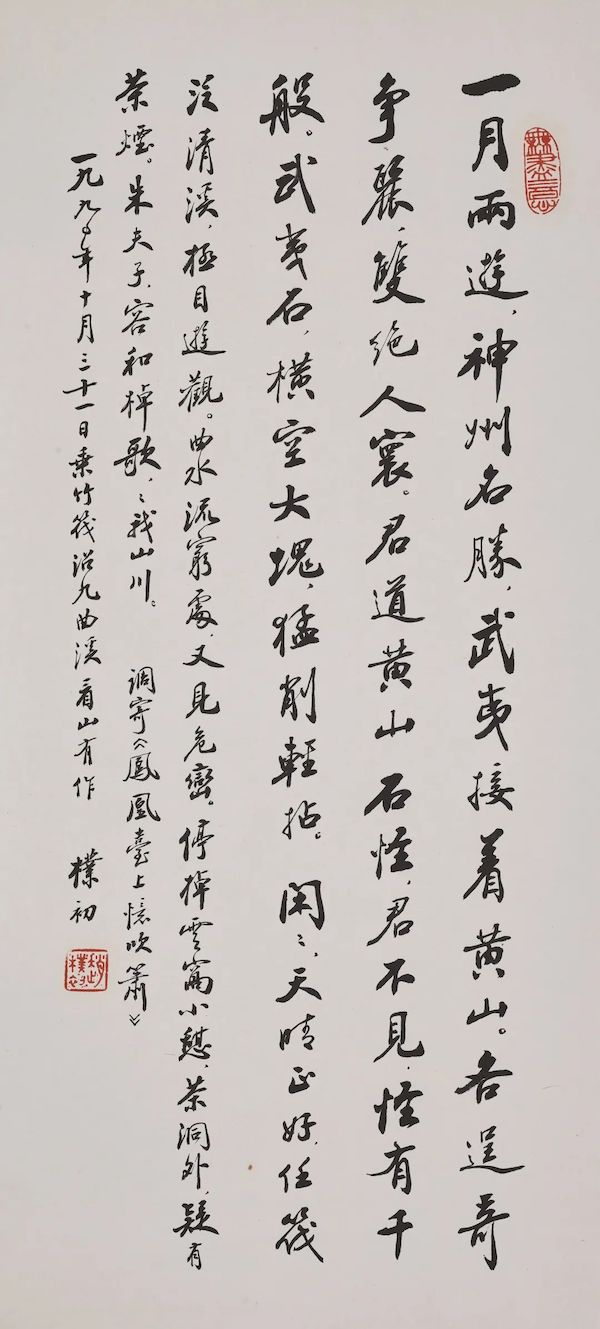 一月兩遊，神州名勝，武夷接着黄山。各逞奇
争麗，雙絶人寰。君道黄山石怪，君不見，怪有千
般。武夷石，横空大塊，猛削輕拈。閑〻，天晴正好，任筏
泛清溪，極目遊觀。曲水流窮處，又見危巒。停棹雲窩小憩，茶洞外，疑有
茶煙。朱夫子，容和棹歌，〻我山川。 调寄《鳳凰臺上憶吹簫》
一九九〇年十月三十一日乘竹筏沿九曲溪看山有作 樸初
趙樸初
無盡意